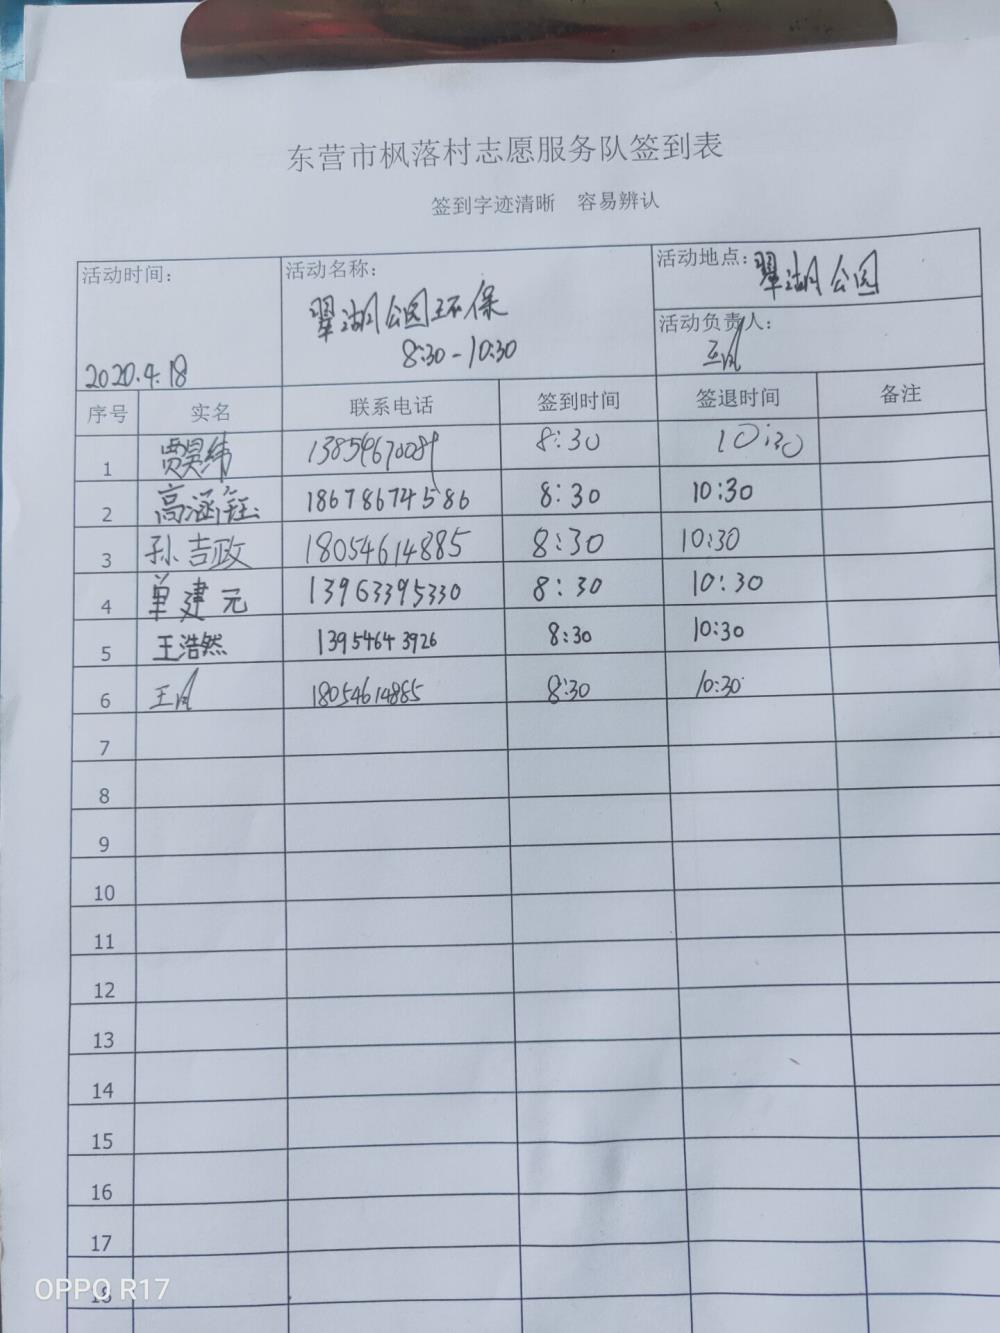 东营市枫落村志愿服务队签到表
签到字迹清晰 容易辨认
活动时间: 2020.4.18
活动名称: 翠湖公园环保 8:30-10:30
活动地点: 翠湖公园
活动负责人: 王凤
序号 实名 联系电话 签到时间 签退时间 备注
1 贾昊纬 8:30 10:30
2 高涵钰 18678674586 8:30 10:30
3 孙吉政 18054614885 8:30 10:30
4 单建元 13963395330 8:30 10:30
5 王浩然 13954643926 8:30 10:30
6 王凤 18054614885 8:30 10:30
7
8
9
10
11
12
13
14
15
16
17
18
OPPO R17